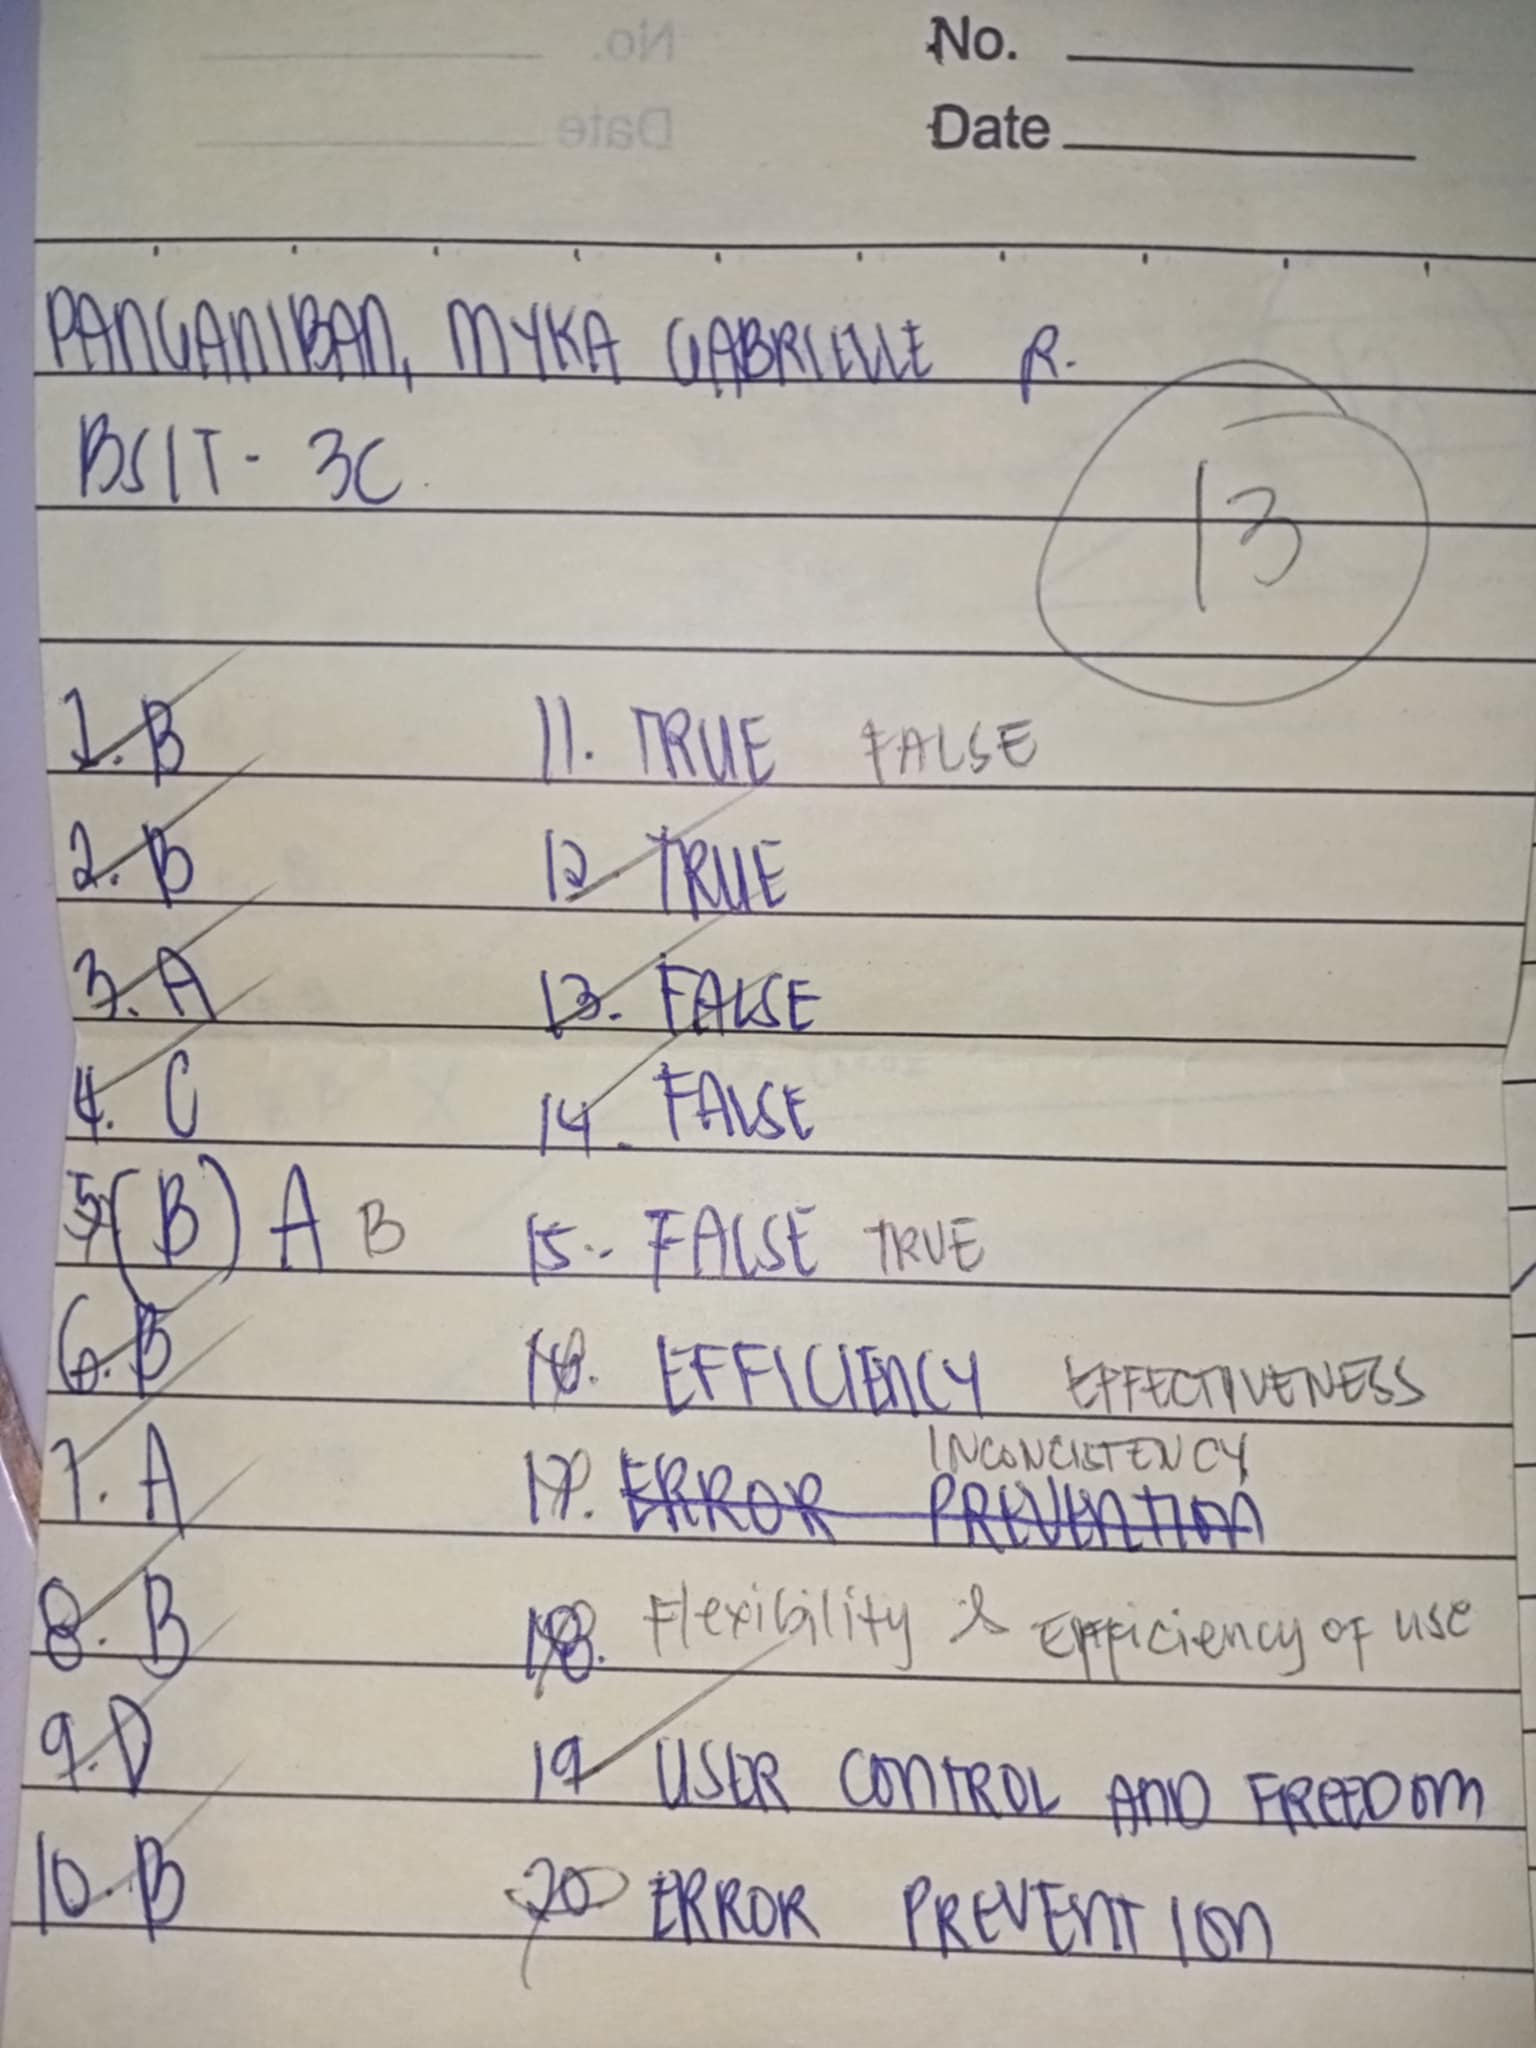 No.
Date
PANGANIBAN, MYKA GABRIELLE R.
BSIT - 3C
13
1. B
2. B
3. A
4. C
5. (B) A B
6. B
7. A
8. B
9. D
10. B
11. TRUE FALSE
12. TRUE
13. FALSE
14. FALSE
15. FALSE TRUE
16. EFFICIENCY EFFECTIVENESS
INCONCISTENCY
17. ERROR PREVENTION
18. Flexibility & Efficiency of use
19 USER CONTROL AND FREEDOM
20 ERROR PREVENTION